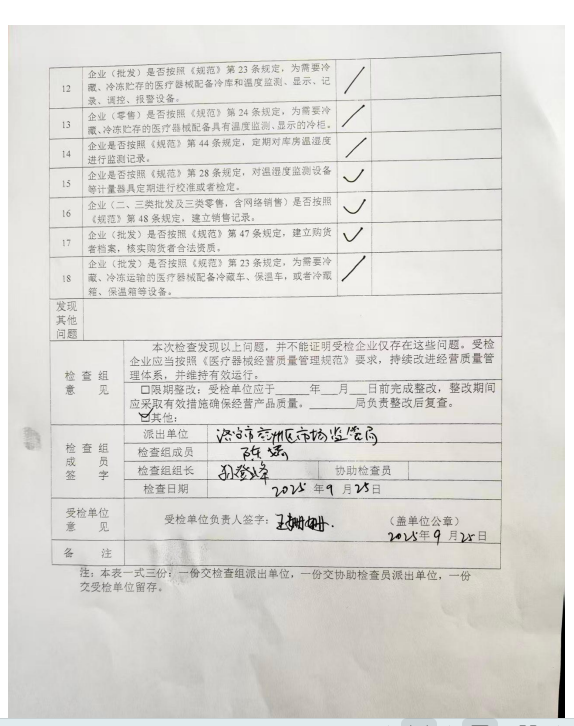 12 企业（批发）是否按照《规范》第 23 条规定，为需要冷
藏、冷冻贮存的医疗器械配备冷库和温度监测、显示、记
录、调控、报警设备。
13 企业（零售）是否按照《规范》第 24 条规定，为需要冷
藏、冷冻贮存的医疗器械配备具有温度监测、显示的冷柜。
14 企业是否按照《规范》第 44 条规定，定期对库房温湿度
进行监测记录。
15 企业是否按照《规范》第 28 条规定，对温湿度监测设备
等计量器具定期进行校准或者检定。
16 企业（二、三类批发及三类零售，含网络销售）是否按照
《规范》第 48 条规定，建立销售记录。
17 企业（批发）是否按照《规范》第 47 条规定，建立购货
者档案，核实购货者合法资质。
18 企业（批发）是否按照《规范》第 23 条规定，为需要冷
藏、冷冻运输的医疗器械配备冷藏车、保温车，或者冷藏
箱、保温箱等设备。
发现
其他
问题
检 查 组
意 见
本次检查发现以上问题，并不能证明受检企业仅存在这些问题。受检
企业应当按照《医疗器械经营质量管理规范》要求，持续改进经营质量管
理体系，并维持有效运行。
□限期整改：受检单位应于____年__月__日前完成整改，整改期间
应采取有效措施确保经营产品质量。____局负责整改后复查。
☑其他：
检 查 组
成 员
签 字
派出单位 市场监管局
检查组成员
检查组组长 协助检查员
检查日期 2025 年 9 月 25 日
受检单位
意 见
受检单位负责人签字： （盖单位公章）
2025 年 9 月 25 日
备 注
注：本表一式三份：一份交检查组派出单位，一份交协助检查员派出单位，一份
交受检单位留存。